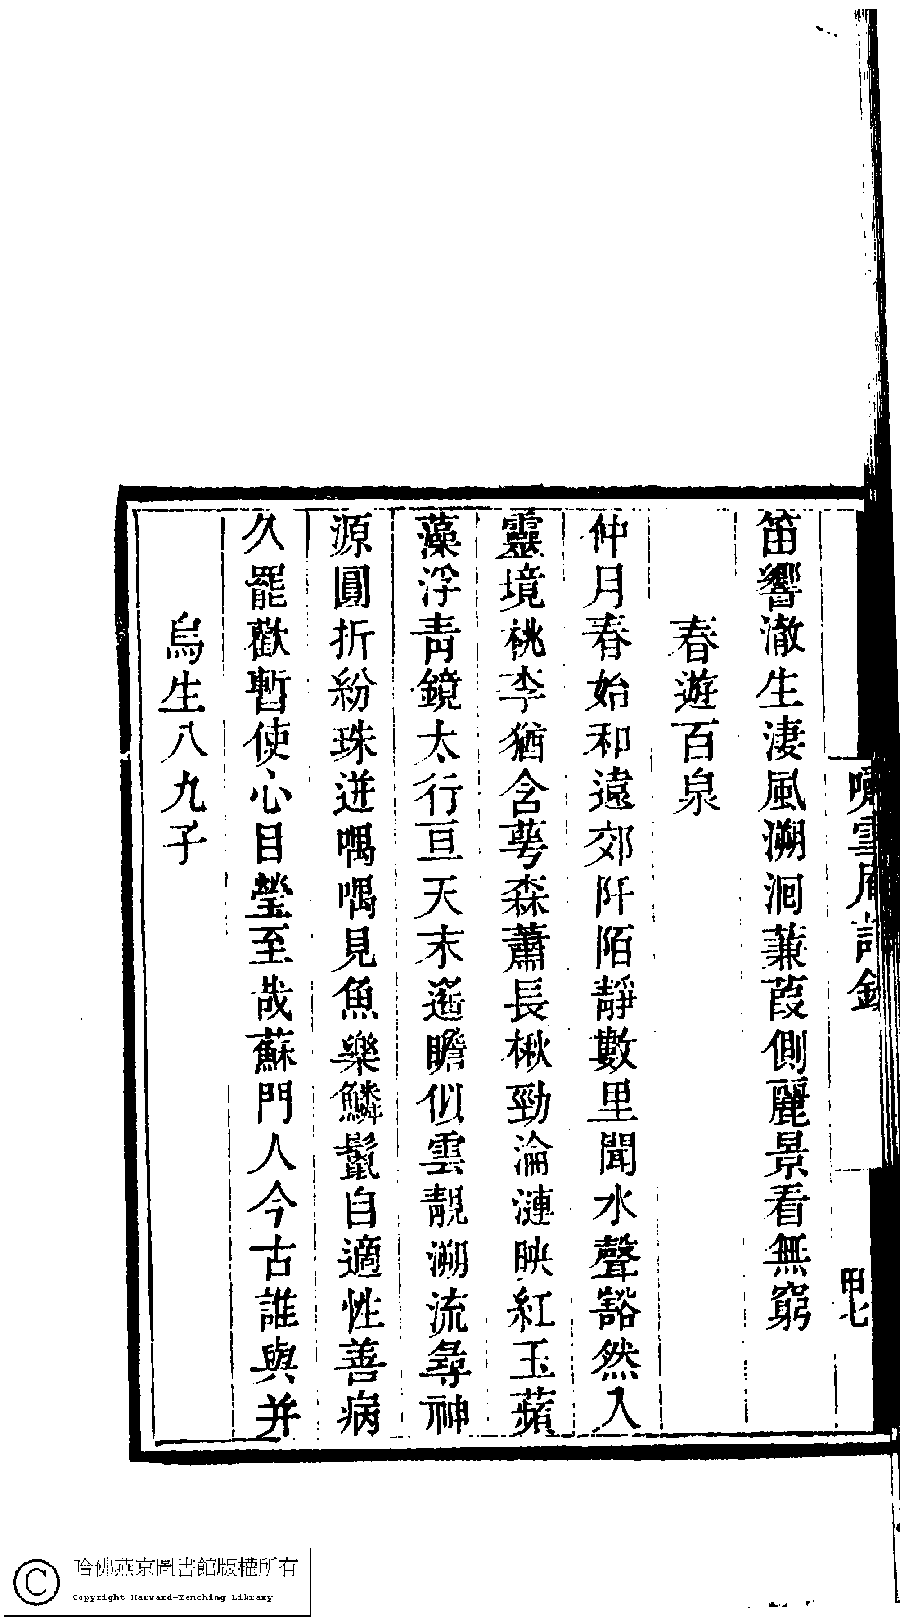 笛響澈生淒風溯洄蒹葭側麗景看無窮
春遊百泉
仲月春始和遠郊阡陌靜數里聞水聲豁然入
靈境桃李猶含萼森蕭長楸勁淪漣映紅玉蘋
藻浮青鏡太行亘天末遙瞻似雲靚溯流尋神
源圓折紛珠迸喁喁見魚樂鱗鬣自適性善病
久罷歡暫使心目瑩至哉蘇門人今古誰與并
烏生八九子
雪庵詩鈔
甲七
哈佛燕京圖書館版權所有
Copyright Harvard-Yenching Library